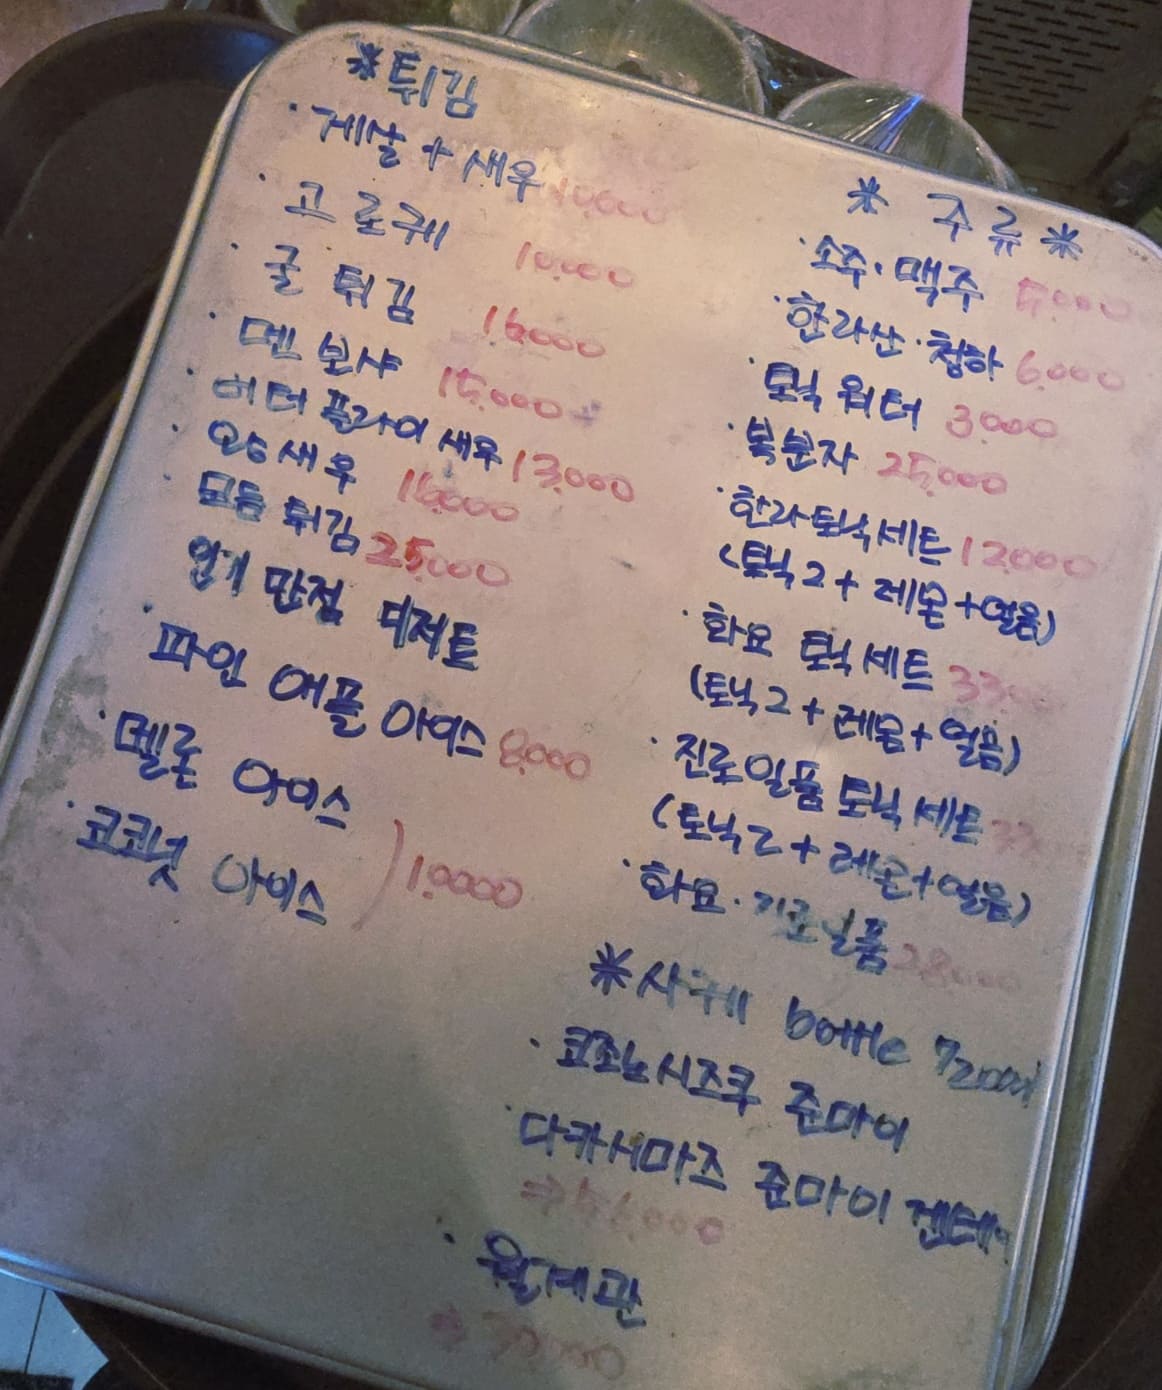 *튀김
· 게살 + 새우 10,000
· 고로케 10,000
· 굴 튀김 16,000
· 멘보샤 15,000
· 버터플라이 새우 13,000
· 왕새우 16,000
· 모듬 튀김 25,000
인기 만점 디저트
· 파인애플 아이스 8,000
· 멜론 아이스
· 코코넛 아이스 ) 10000
* 주류 *
· 소주 · 맥주 5,000
· 한라산 · 청하 6,000
· 토닉워터 3,000
· 복분자 25,000
· 한라토닉세트 12,000
(토닉2 + 레몬 + 얼음)
· 화요 토닉세트
(토닉2 + 레몬 + 얼음)
· 진로일품 토닉세트
(토닉2 + 레몬 + 얼음)
· 화요 · 진로일품 28,000
*사케 bottle 720ml
· 코조노시즈쿠 준마이
· 다카시마즈 준마이
· 월계관